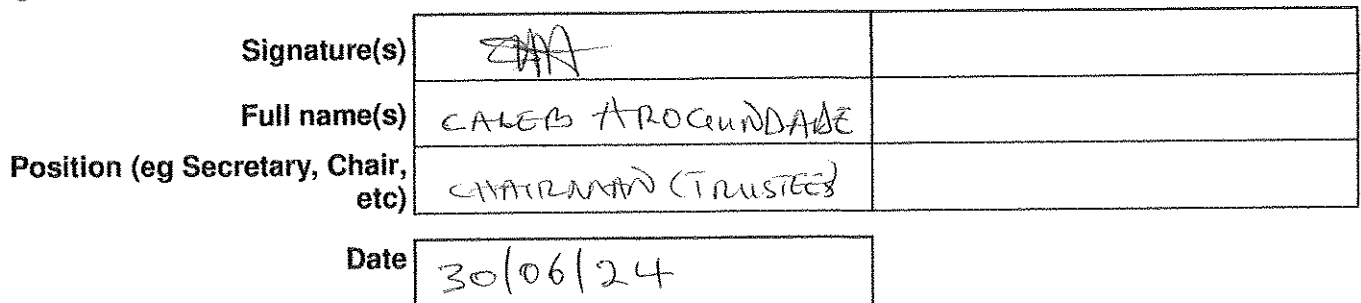 Signature(s)
Full name(s) CALEB AROGUNDADE
Position (eg Secretary, Chair, etc) CHAIRMAN (TRUSTEES)
Date 30/06/24